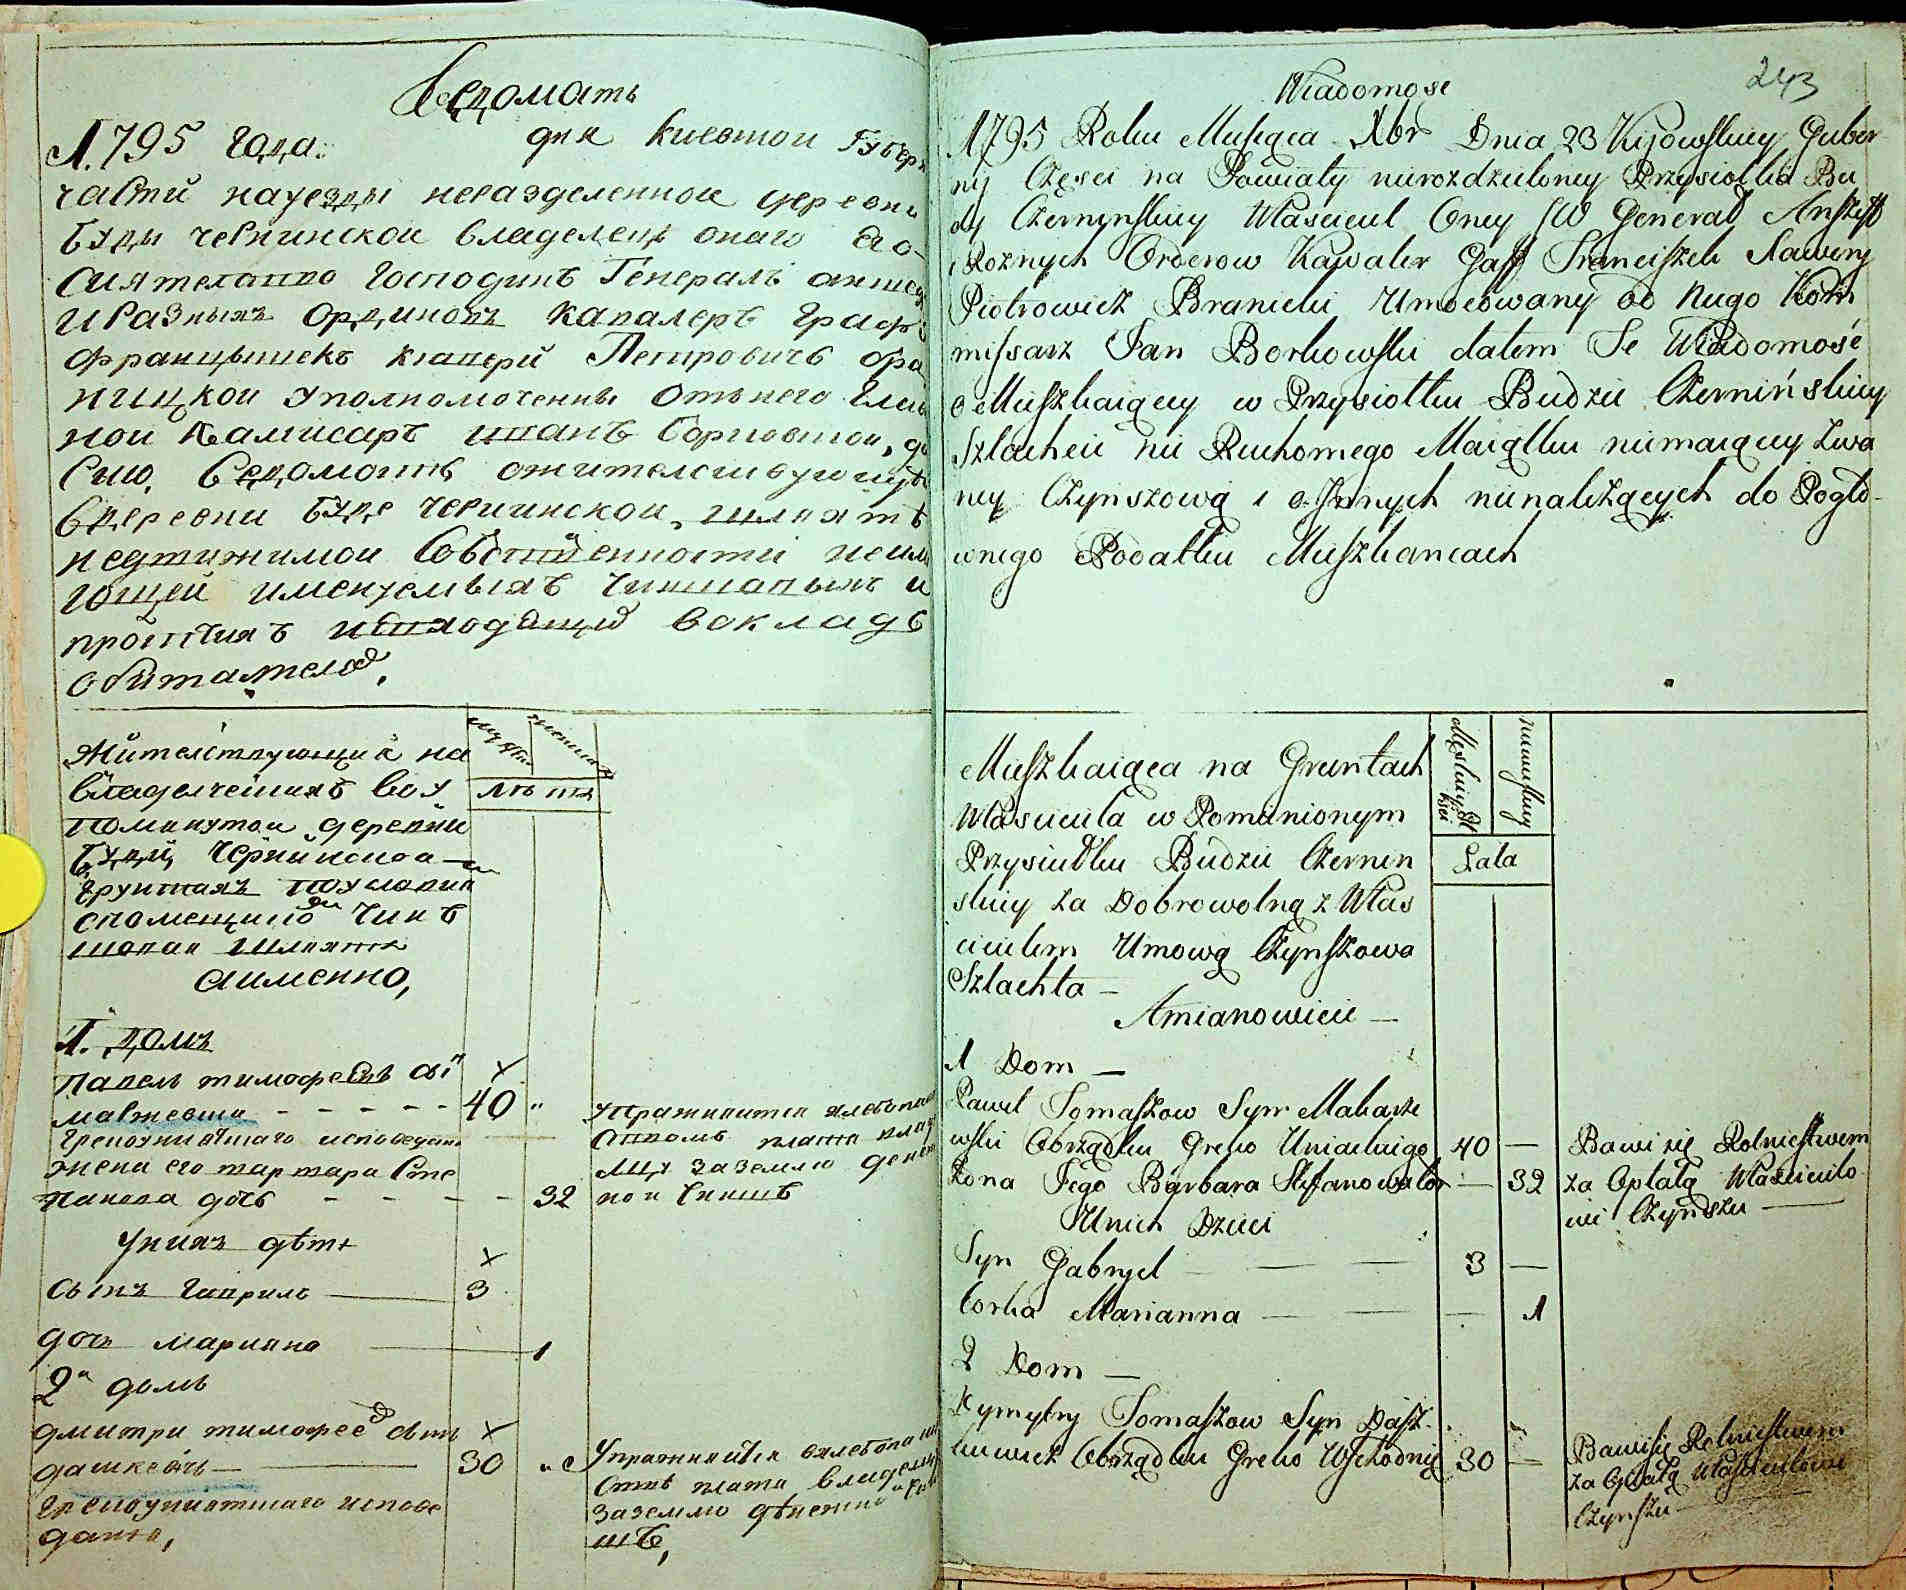 Ведомать
1795 года. дня Киевской Губерн
части науезды неразделенной деревни
Буды Чернинской владелецъ онаго Ея
сиятельство Господинъ Генералъ аншеф
и Разныхъ Ординовъ Кавалеръ Графъ
Францышекъ Ксаверй Петровичъ бра
ницкой уполномоченны отънего Глав
ной Камисаръ Иванъ Борковской, да
Сию, Ведомость ожителствующей
вдеревни Буде Чернинской, шляхтъ
недвижимой Собственности неим
ющей именуемыхъ Чиншовыхъ и
протчихъ невходящихъ вокладъ
обитателей,
Жителствующия на
владелческихъ воу
помянутой деревни
Буды Чернинской
грунтахъ поусловию
спомещикомъ Чин
шовая шляхта
аименно,
мужска
женска
лѣта
1. домъ
Павелъ тимофеевъ сы
макжевски - - - - - 40 "
Грекоуниятшаго исповедан
жена его
панова дочь - - - - 32
Упражняится хлебопа
платя влад
лцу заземлю
Чиншъ
Унихъ дѣти
сынъ Гаврилъ — 3
дочь мариана — 1
2й домъ
дмитри тимофеевъ сынъ
дашкевичъ — 30 "
Грекоуниятшаго исповѣ
дания,
Упражняйтся хлебопа
платя
заземлю
шъ,
Wiadomosc 243
1795 Roku Miesiąca Xbr Dnia 23 Kijowskiey Guber
nij Części na Powiaty nierozdzieloney Przysiołka Bu
dy Czerninskiey Własciciel Oney JW General Anszyff
i Roznych Orderow Kawaler Gaff Franciszek Xawery
Piotrowicz Branicki Umocowany od Niego Kom
missarz Jan Borkowski dałem Te Wiadomość
o Mieszkaiącey w Przysiołku Budzie Czernińskiey
Szlachcie nie Ruchomego Maiątku niemaiącey Zwa
ney Czynszową i o Jnnych nienależących do Pogło-
wnego Podatku Mieszkancach
Mieszkaiąca na Gruntach
Własciciela w Pomienionym
Przysiułku Budzie Czernin
skiey za Dobrowolną z Włas
cicielem Umową Czynszowa
Szlachta —
Amianowicie —
Męskiey Pł
ciey
Niewieskiey
Lata
1 Dom —
Paweł Tomaszow Syn Makarze
wski Obrządku Greko Uniackiego 40 — Bawi się Rolnictwem
Zona Jego Barbara Stefanowa — 32 za Opłatą Własciciolo
wi Czynszu —
Unich Dzieci
Syn Gabryel — — — 3 —
Corka Marianna — — — 1
2 Dom —
Dymytry Tomaszow Syn Dasz-
kiewicz Obrządku Greko Wschodnie 30 — Bawi się Rolnictwem
za Opłatą Własciciolowi
Czynszu —